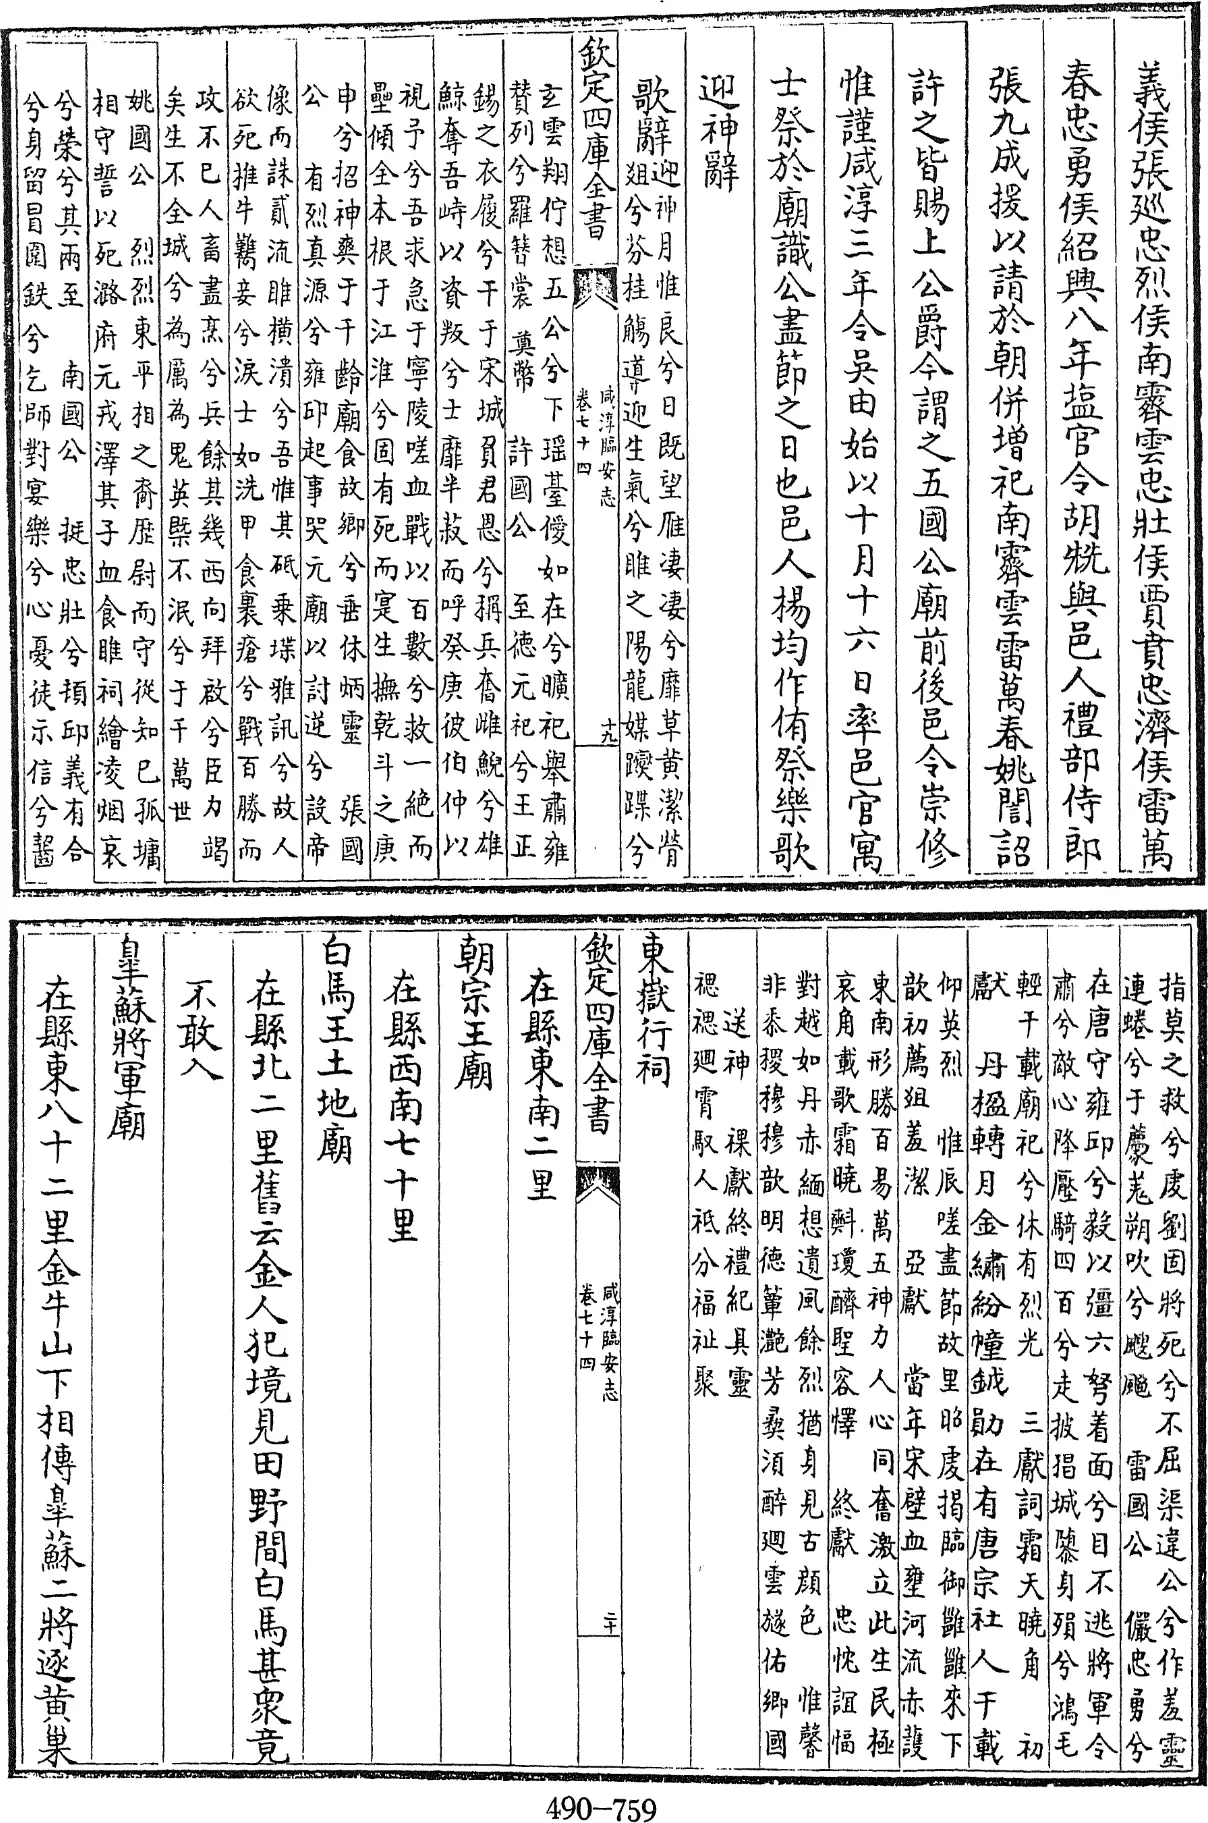 義侯張廵忠烈侯南霽雲忠壯侯賈賁忠濟侯雷萬
春忠勇侯紹興八年塩官令胡㒞與邑人禮部侍郎
張九成援以請於朝併增祀南霽雲雷萬春姚誾詔
許之皆賜上公爵今謂之五國公廟前後邑令崇修
惟謹咸淳三年令吳由始以十月十六日率邑官寓
士祭於廟識公盡節之日也邑人楊均作侑祭樂歌
迎神辭
歌辭迎神月惟良兮日既望雁凄凄兮靡草黄潔膋
俎兮芬桂觴導迎生氣兮睢之陽龍媒躞蹀兮
欽定四庫全書
咸淳臨安志
卷七十四
十九
玄雲翔佇想五公兮下瑶臺僾如在兮曠祀舉肅雍
贊列兮羅簪裳 奠幣 許國公 至德元祀兮王正
錫之衣履兮干于宋城負君恩兮稱兵奮雌鯢兮雄
鯨奪吾峙以資叛兮士靡半菽而呼癸庚彼伯仲以
視予兮吾求急于寧陵嗟血戰以百數兮救一絶而
壘傾全本根于江淮兮固有死而寔生撫乾斗之庚
申兮招神爽于千齡廟食故鄉兮垂休炳靈 張國
公 有烈真源兮雍邱起事哭元廟以討逆兮設帝
像而誅貳流睢横潰兮吾惟其砥乗堞雅訊兮故人
欲死推牛鷚妾兮淚士如洗甲食裹瘡兮戰百勝而
攻不已人畜盡烹兮兵餘其幾西向拜啟兮臣力竭
矣生不全城兮為厲為鬼英槩不泯兮于千萬世
姚國公 烈烈東平相之裔歴尉而守從知已孤墉
相守誓以死潞府元戎澤其子血食睢祠繪凌烟哀
兮榮兮其兩至 南國公 挺忠壯兮頓邱義有合
兮身留冒圍鉄兮乞師對宴樂兮心憂徒示信兮齧
指莫之救兮虔劉固將死兮不屈渠違公兮作羞靈
連蜷兮于薦羗朔吹兮颼飀 雷國公 儼忠勇兮
在唐守雍邱兮毅以彊六弩着面兮目不逃將軍令
肅兮敵心降壓騎四百兮走披猖城隳身殞兮鴻毛
輕千載廟祀兮休有烈光 三獻詞霜天曉角 初
獻 丹楹轉月金繡紛幢鉞勛在有唐宗社人千載
仰英烈 惟辰嗟盡節故里昭虔揭臨御雖雖來下
歆初薦俎羞潔 亞獻 當年宋壁血壅河流赤護
東南形勝百易萬五神力人心同奮激立此生民極
哀角載歌霜曉斞瓊醑聖容懌 終獻 忠忱誼愊
對越如丹赤緬想遺風餘烈猶身見古顔色 惟馨
非黍稷穆穆歆明德葷灔芳彞須醉廻雲旞佑鄉國
送神 祼獻終禮紀具靈
禗禗廻霄馭人祗分福祉聚
東嶽行祠
欽定四庫全書
咸淳臨安志
卷七十四
二十
在縣東南二里
朝宗王廟
在縣西南七十里
白馬王土地廟
在縣北二里舊云金人犯境見田野間白馬甚衆竟
不敢入
臯蘇將軍廟
在縣東八十二里金牛山下相傳臯蘇二將逐黄巢
490-759